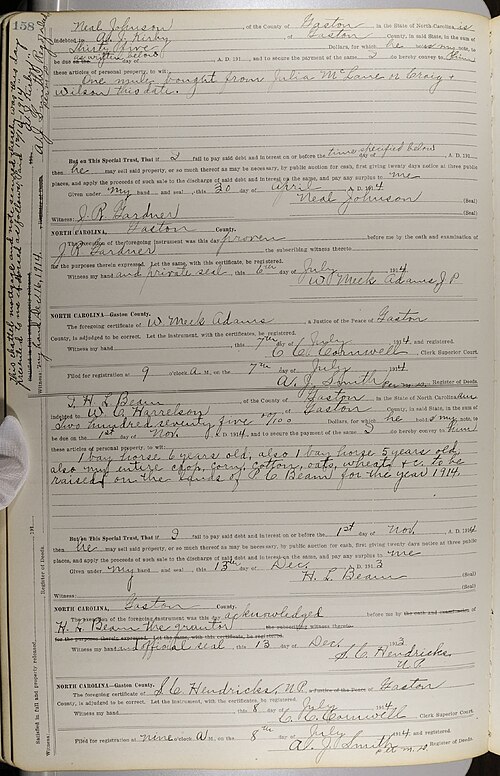 158
Neal Johnson, of the County of Gaston in the State of North Carolina, is
indebted to Kirby of Gaston County, in said State, in the sum of
Thirty five Dollars, for which he holds my note, to
be due as written below day of A. D. 191 , and to secure the payment of the same, I do hereby convey to him
these articles of personal property, to wit:
One mule bought from Julia McLane n Craig +
Wilson this date.
But on This Special Trust, That if I fail to pay said debt and interest on or before the time specified below day of A. D. 191
then he may sell said property, or so much thereof as may be necessary, by public auction for cash, first giving twenty days notice at three public
places, and apply the proceeds of such sale to the discharge of said debt and interest on the same, and pay any surplus to me
Given under my hand and seal, this 30 day of April A. D. 1914
Neal Johnson (Seal)
Witness: J. R. Gardner (Seal)
NORTH CAROLINA, Gaston County.
The execution of the foregoing instrument was this day proven before me by the oath and examination of
J. R. Gardner the subscribing witness thereto
for the purposes therein expressed. Let the same, with this certificate, be registered.
Witness my hand and private seal this 6th day of July 1914
W. Meek Adams, J. P.
NORTH CAROLINA—Gaston County.
The foregoing certificate of W Meek Adams a Justice of the Peace of Gaston
County, is adjudged to be correct. Let the instrument, with the certificates, be registered.
Witness my hand this 7th day of July 1914
C. C. Cornwell Clerk Superior Court.
Filed for registration at 9 o'clock A. M. on the 7th day of July 1914 and registered.
A. J. Smith Register of Deeds.
H. L. Beam of the County of Gaston in the State of North Carolina, am
indebted to W. C. Harrelson of Gaston County, in said State, in the sum of
Two hundred seventy five no/100 Dollars, for which he holds my note, to
be due on the 1st day of Nov. A. D. 1914, and to secure the payment of the same, I do hereby convey to him
these articles of personal property, to wit:
1 bay horse 6 years old, also 1 bay horse 5 years old,
also my entire crop, corn, cotton, oats, wheat, &c. to be
raised on the lands of P. C. Beam for the year 1914.
But on This Special Trust, That if I fail to pay said debt and interest on or before the 1st day of Nov. A. D. 1914
then he may sell said property, or so much thereof as may be necessary, by public auction for cash, first giving twenty days notice at three public
places, and apply the proceeds of such sale to the discharge of said debt and interest on the same, and pay any surplus to me
Given under my hand and seal, this 13th day of Dec. A. D. 1913
H. L. Beam (Seal)
Witness: (Seal)
NORTH CAROLINA, Gaston County.
The execution of the foregoing instrument was this day acknowledged before me by the oath and examination of
H. L. Beam the grantor the subscribing witness thereto
for the purposes therein expressed. Let the same, with this certificate, be registered.
Witness my hand and official seal this 13 day of Dec. 1913
S. C. Hendricks,
N. P.
NORTH CAROLINA—Gaston County.
The foregoing certificate of S. C. Hendricks, N. P. a Justice of the Peace of Gaston
County, is adjudged to be correct. Let the instrument, with the certificates, be registered.
Witness my hand this 8 day of July 1914
C. C. Cornwell Clerk Superior Court.
Filed for registration at nine o'clock A. M. on the 8th day of July 1914 and registered.
A. J. Smith Register of Deeds.
This chattel mortgage and note
Witness my hand Dec. 16, 1914.
Satisfied in full and property released.
Register of Deeds.